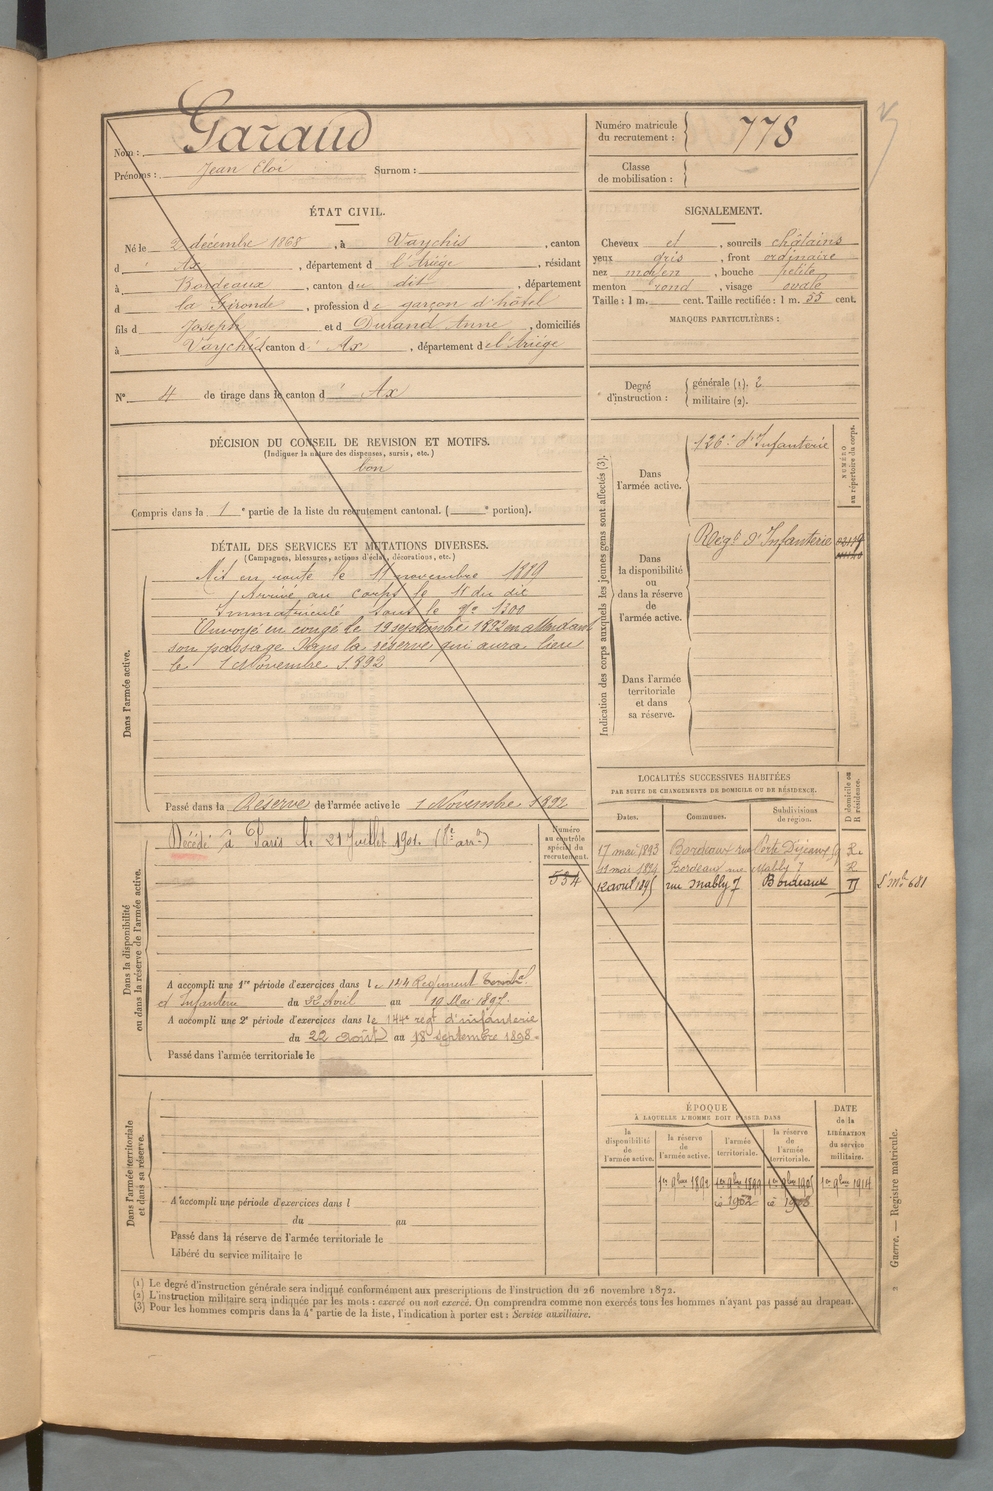 Nom : Garaud
Prénoms : Jean Eloi Surnom :
Numéro matricule du recrutement : 778
Classe de mobilisation :
ÉTAT CIVIL.
Né le 2 décembre 1868, à Vaychis, canton
d' Ax, département d l'Ariège, résidant
à Bordeaux, canton du dit, département
d la Gironde, profession de garçon d'hôtel
fils d Joseph et d Durand Anne, domiciliés
à Vaychis canton d' Ax, département de l'Ariège
SIGNALEMENT.
Cheveux et, sourcils châtains
yeux gris, front ordinaire
nez moyen, bouche petite
menton rond, visage ovale
Taille : 1 m. cent. Taille rectifiée : 1 m. 55 cent.
MARQUES PARTICULIÈRES :
N° 4 de tirage dans le canton d' Ax
Degré d'instruction : générale (1). 2
militaire (2).
DÉCISION DU CONSEIL DE REVISION ET MOTIFS.
(Indiquer la nature des dispenses, sursis, etc.)
bon
Compris dans la 1e partie de la liste du recrutement cantonal. ( e portion).
DÉTAIL DES SERVICES ET MUTATIONS DIVERSES.
(Campagnes, blessures, actions d'éclat, décorations, etc.)
Dans l'armée active.
Mis en route le 11 novembre 1889
Arrivé au corps le 11 du dit
Immatriculé sous le N° 1300
Envoyé en congé le 19 septembre 1892 en attendant
son passage dans la réserve qui aura lieu
le 1 Novembre 1892
Passé dans la Réserve de l'armée active le 1 Novembre 1892
Indication des corps auxquels les jeunes gens sont affectés (3).
NUMÉRO au répertoire du corps.
Dans l'armée active.
126e d'Infanterie
Dans la disponibilité ou dans la réserve de l'armée active.
Régt d'Infanterie
Dans l'armée territoriale et dans sa réserve.
LOCALITÉS SUCCESSIVES HABITÉES
PAR SUITE DE CHANGEMENTS DE DOMICILE OU DE RÉSIDENCE.
D domicile ou R résidence.
Dates. Communes. Subdivisions de région.
17 mai 1893 Bordeaux rue Porte Dijeaux R
mai 1894 Bordeaux rue Mably 7 R
12 avril 1895 rue Mably 7 Bordeaux D
681
Dans la disponibilité ou dans la réserve de l'armée active.
Numéro au contrôle spécial du recrutement.
534
Décédé à Paris le 21 Juillet 1901.
A accompli une 1re période d'exercices dans le 144 Régiment
d'Infanterie du 22 Avril au 19 Mai 1897.
A accompli une 2e période d'exercices dans le 144e régt d'infanterie
du 22 août au 18 septembre 1898.
Passé dans l'armée territoriale le
Dans l'armée territoriale et dans sa réserve.
A accompli une période d'exercices dans l
du au
Passé dans la réserve de l'armée territoriale le
Libéré du service militaire le
ÉPOQUE
À LAQUELLE L'HOMME DOIT PASSER DANS
la disponibilité de l'armée active.
la réserve de l'armée active.
l'armée territoriale.
la réserve de l'armée territoriale.
DATE de la LIBÉRATION du service militaire.
1er 9bre 1892 1er 9bre 1899 1er 9bre 1905 1er 9bre 1914
1902 1908
Guerre. — Registre matricule.
(1) Le degré d'instruction générale sera indiqué conformément aux prescriptions de l'instruction du 26 novembre 1872.
(2) L'instruction militaire sera indiquée par les mots : exercé ou non exercé. On comprendra comme non exercés tous les hommes n'ayant pas passé au drapeau.
(3) Pour les hommes compris dans la 4e partie de la liste, l'indication à porter est : Service auxiliaire.